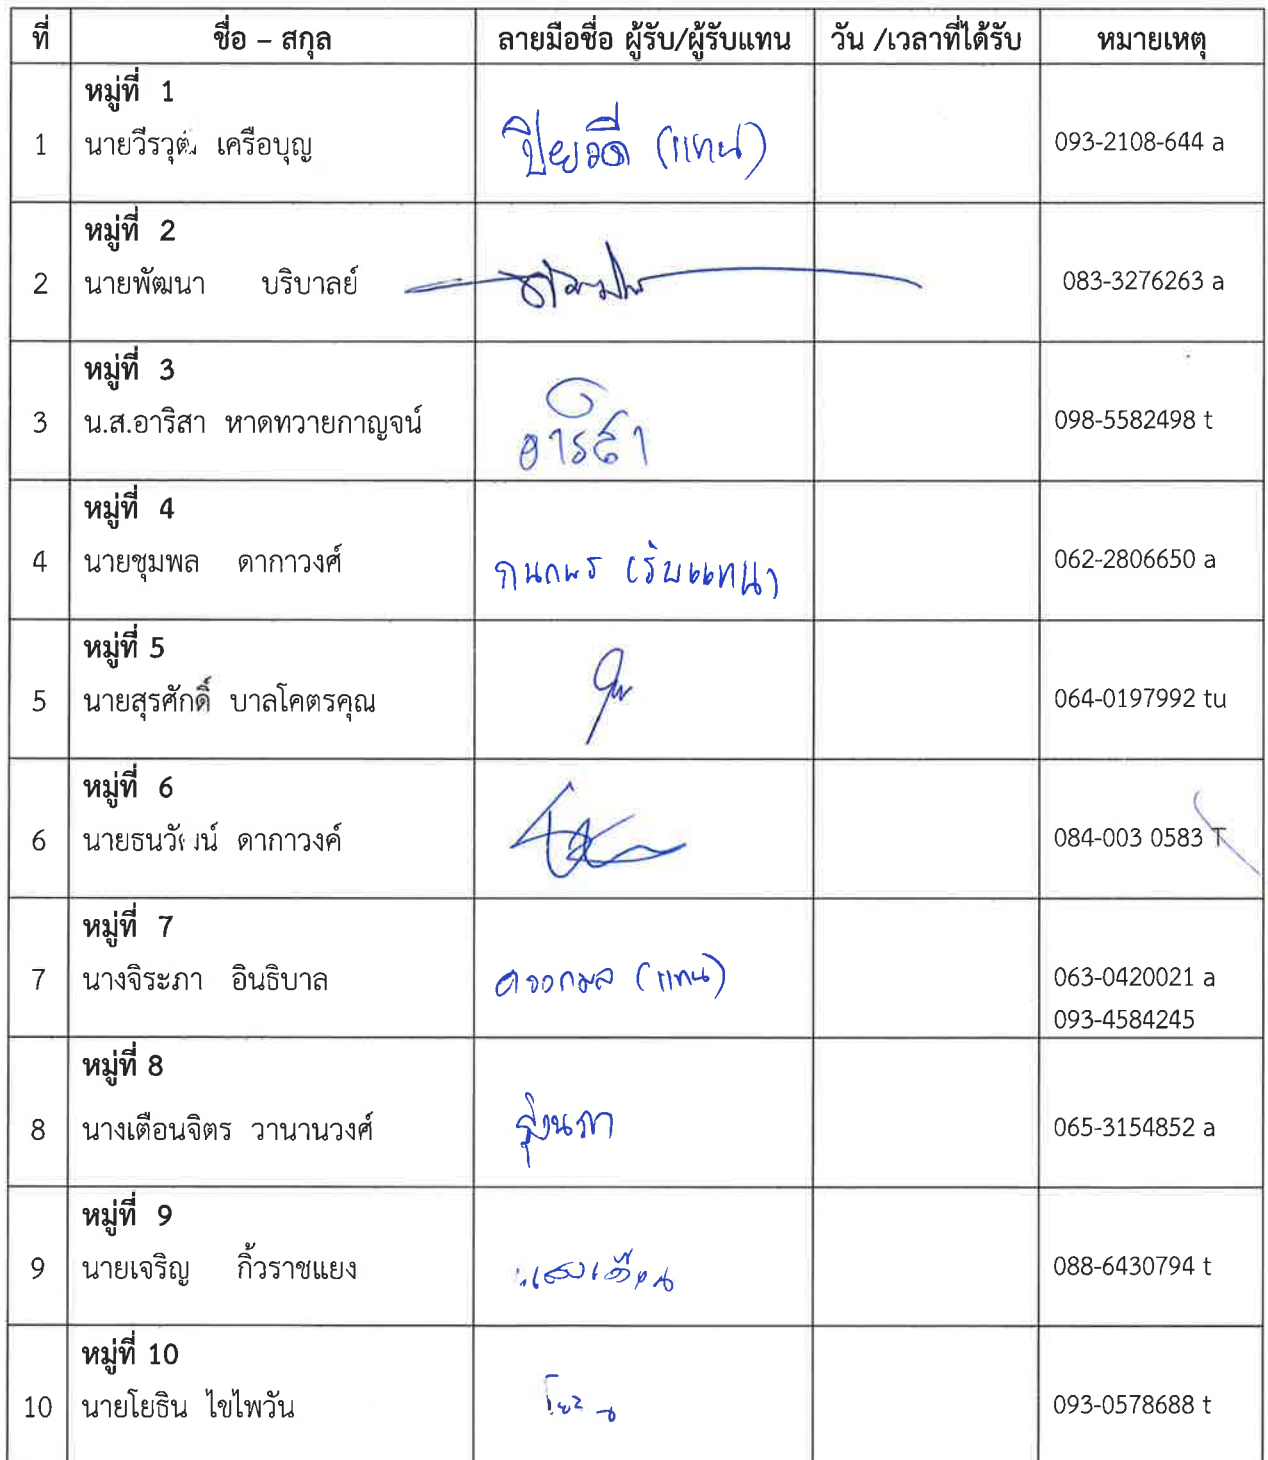 ที่ ชื่อ – สกุล ลายมือชื่อ ผู้รับ/ผู้รับแทน วัน /เวลาที่ได้รับ หมายเหตุ
หมู่ที่ 1
1 นายวีรวุฒิ เครือบุญ ปิยวดี (แทน) 093-2108-644 a
หมู่ที่ 2
2 นายพัฒนา บริบาลย์ 083-3276263 a
หมู่ที่ 3
3 น.ส.อาริสา หาดทวายกาญจน์ อาริสา 098-5582498 t
หมู่ที่ 4
4 นายชุมพล ดากาวงศ์ กนกพร (รับแทน) 062-2806650 a
หมู่ที่ 5
5 นายสุรศักดิ์ บาลโคตรคุณ 064-0197992 tu
หมู่ที่ 6
6 นายธนวัฒน์ ดากาวงค์ 084-003 0583 T
หมู่ที่ 7
7 นางจิระภา อินธิบาล (แทน) 063-0420021 a
093-4584245
หมู่ที่ 8
8 นางเตือนจิตร วานานวงศ์ 065-3154852 a
หมู่ที่ 9
9 นายเจริญ กิ้วราชแยง 088-6430794 t
หมู่ที่ 10
10 นายโยธิน ไขไพวัน โยธิน 093-0578688 t